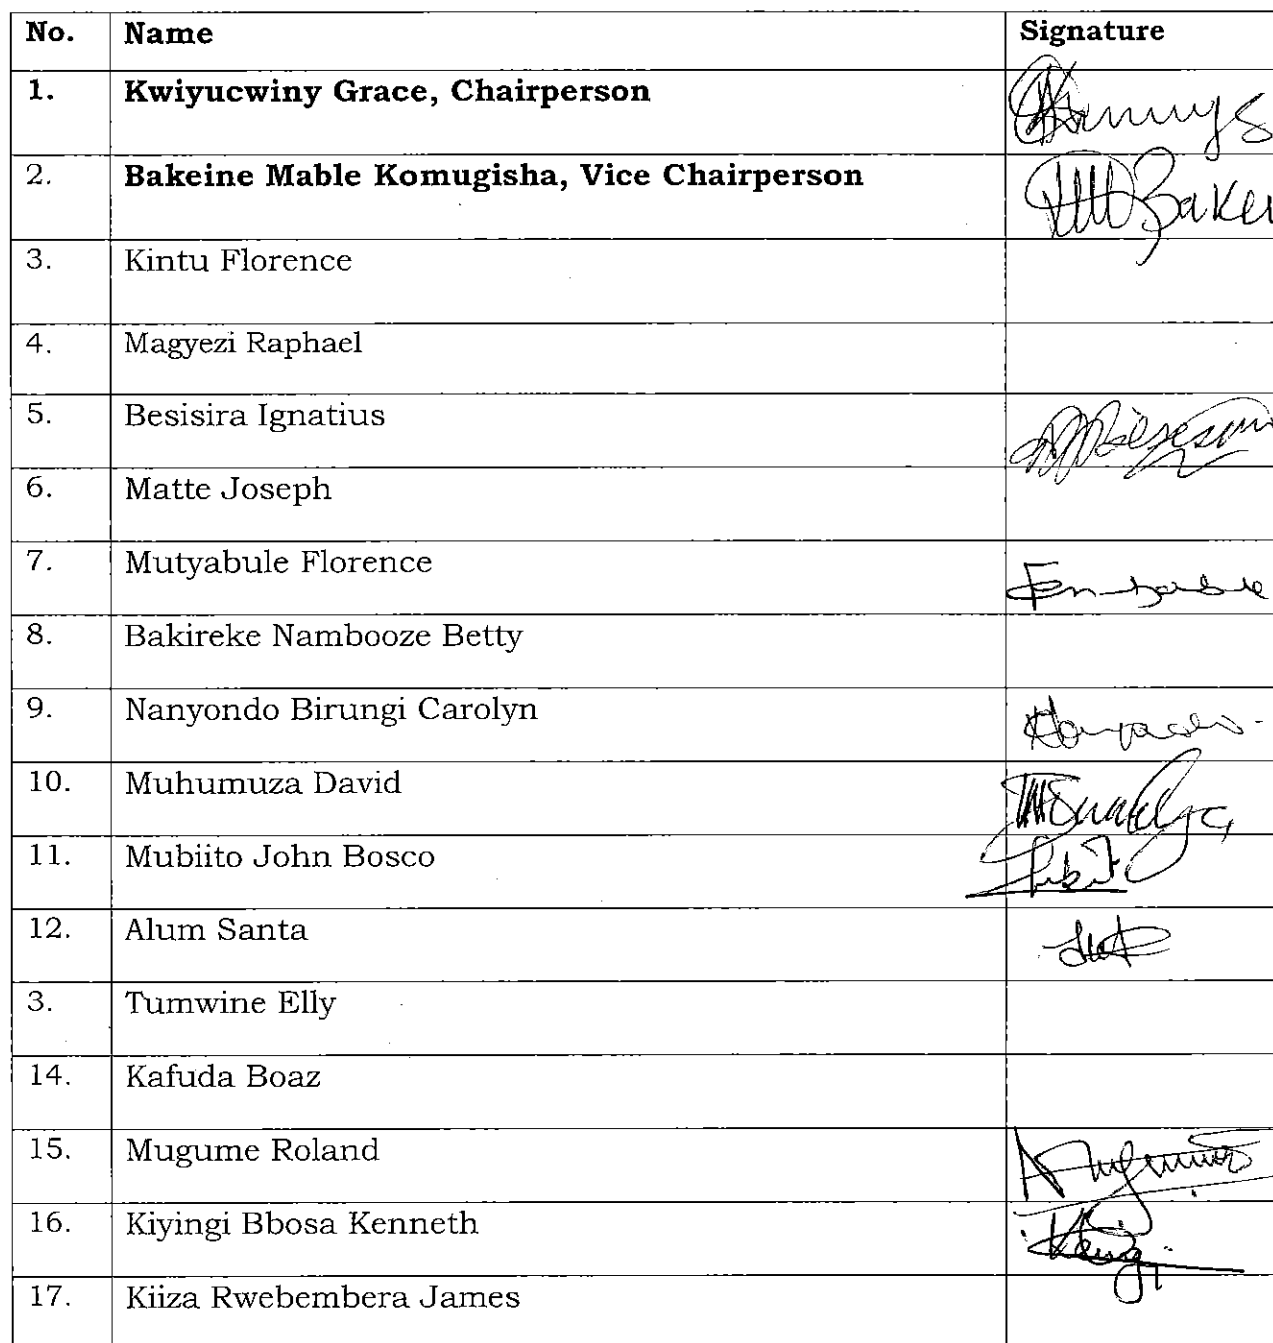 No. Name Signature
1. Kwiyucwiny Grace, Chairperson
2. Bakeine Mable Komugisha, Vice Chairperson
3. Kintu Florence
4. Magyezi Raphael
5. Besisira Ignatius
6. Matte Joseph
7. Mutyabule Florence
8. Bakireke Nambooze Betty
9. Nanyondo Birungi Carolyn
10. Muhumuza David
11. Mubiito John Bosco
12. Alum Santa
3. Tumwine Elly
14. Kafuda Boaz
15. Mugume Roland
16. Kiyingi Bbosa Kenneth
17. Kiiza Rwebembera James